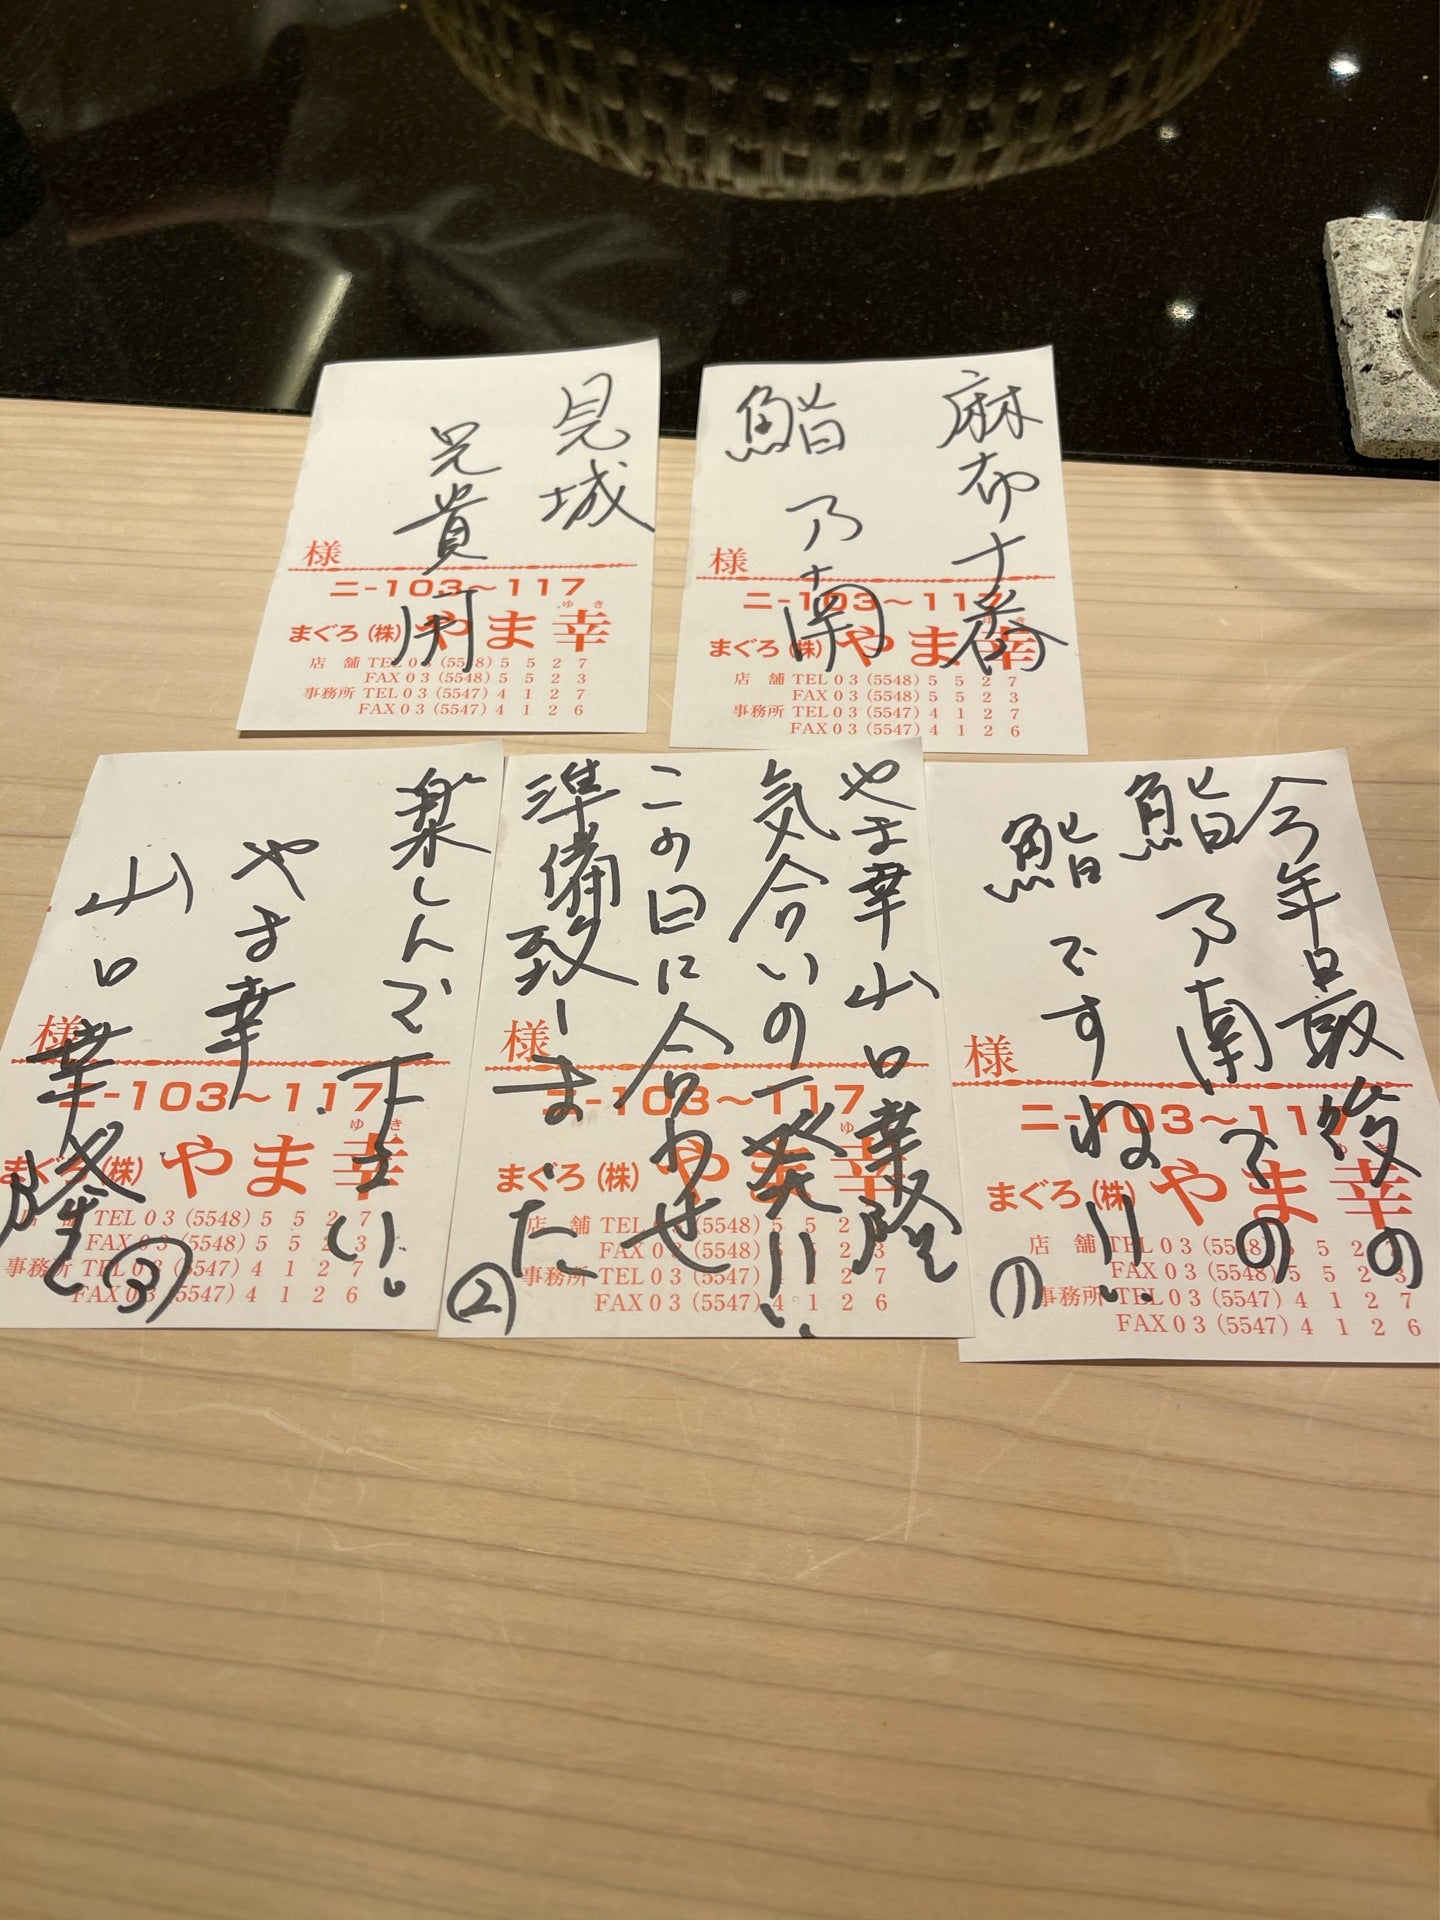 麻布十番
鮨乃南
様
ニ-103～117
ゆき
まぐろ(株)やま幸
店舗 TEL03(5548)5527
FAX03(5548)5523
事務所 TEL03(5547)4127
FAX03(5547)4126
見城
兄貴
様
ニ-103～117
ゆき
まぐろ(株)やま幸
店舗 TEL03(5548)5527
FAX03(5548)5523
事務所 TEL03(5547)4127
FAX03(5547)4126
今年最後の
鮨乃南での
鮨ですね!!
①
様
ニ-103～117
まぐろ(株)やま幸
店舗 TEL03(5548)5523
FAX03(5548)5523
事務所 TEL03(5547)4127
FAX03(5547)4126
やま幸山口幸隆
気合いの一発!!
この日に合わせ
準備致しました
②
様
ニ-103～117
ゆき
まぐろ(株)やま幸
店舗 TEL03(5548)552
FAX03(5548)5523
事務所 TEL03(5547)4127
FAX03(5547)4126
楽しんで下さい。
やま幸
山口幸隆
③
様
ニ-103～117
ゆき
まぐろ(株)やま幸
店舗 TEL03(5548)5527
FAX03(5548)5523
事務所 TEL03(5547)4127
FAX03(5547)4126